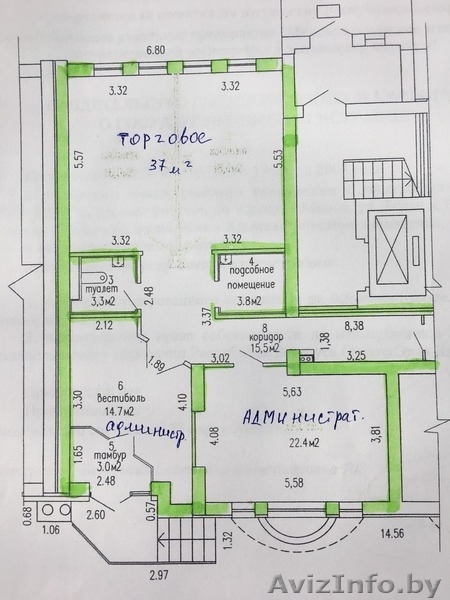 6.80
3.32
3.32
торговое
37 м²
5.57
5.53
3.32
3.32
3
туалет
3,3м2
2.48
4
подсобное
помещение
3.8м2
2.12
3.37
8
коридор
15,5м2
1,38
8,38
3,25
1.89
3,02
6
Вестибюль
14.7м2
админист.
3.30
4.10
5,63
Админист​рат.
22.4м2
4,08
3,81
5
тамбур
3.0м2
1.65
2.48
5,58
0.68
1.06
2.60
0.57
1.32
2.97
14.56
AvizInfo.by